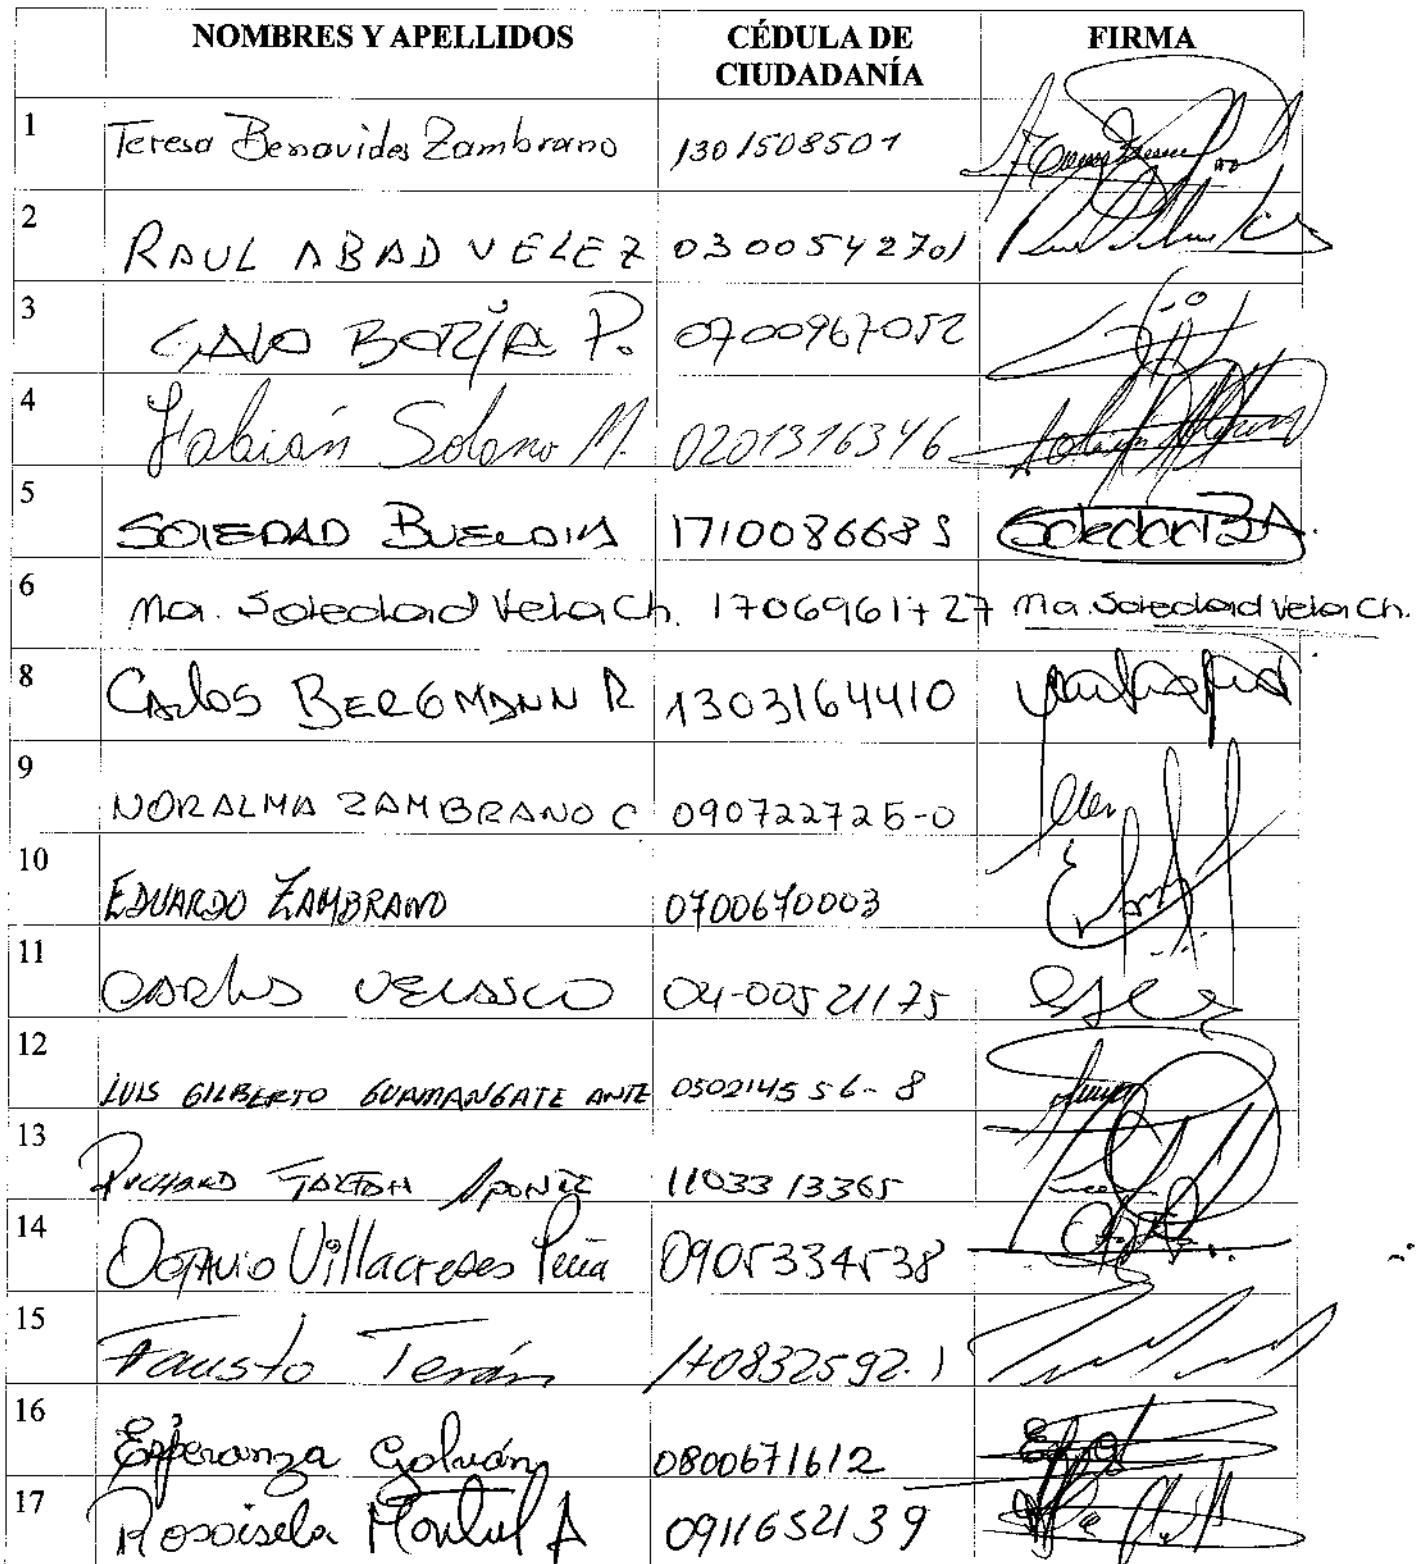 NOMBRES Y APELLIDOS CÉDULA DE CIUDADANÍA FIRMA
1 Teresa Benavides Zambrano 1301508501
2 RAUL ABAD VELEZ 0300542701
3 GALO BORJA P. 0700967052
4 Fabián Solano M. 0201316346
5 SOLEDAD BUENDIA 1710086683 Soledad B A.
6 Ma. Soledad Vela Ch. 1706961727 Ma. Soledad Vela Ch.
8 CARLOS BERGMANN R 1303164410
9 NORALMA ZAMBRANO C 090722725-0
10 EDUARDO ZAMBRANO 0700670003
11 CARLOS VELASCO 04-00521175
12 LUIS GILBERTO GUAMANGATE ANTE 050214556-8
13 RICHARD GASTON APONTE 1103313365
14 OCTAVIO Villacreses Peña 0905334538
15 Fausto Terán 170832592-1
16 Esperanza Galván 0800671612
17 Rosaisela A 0911652139